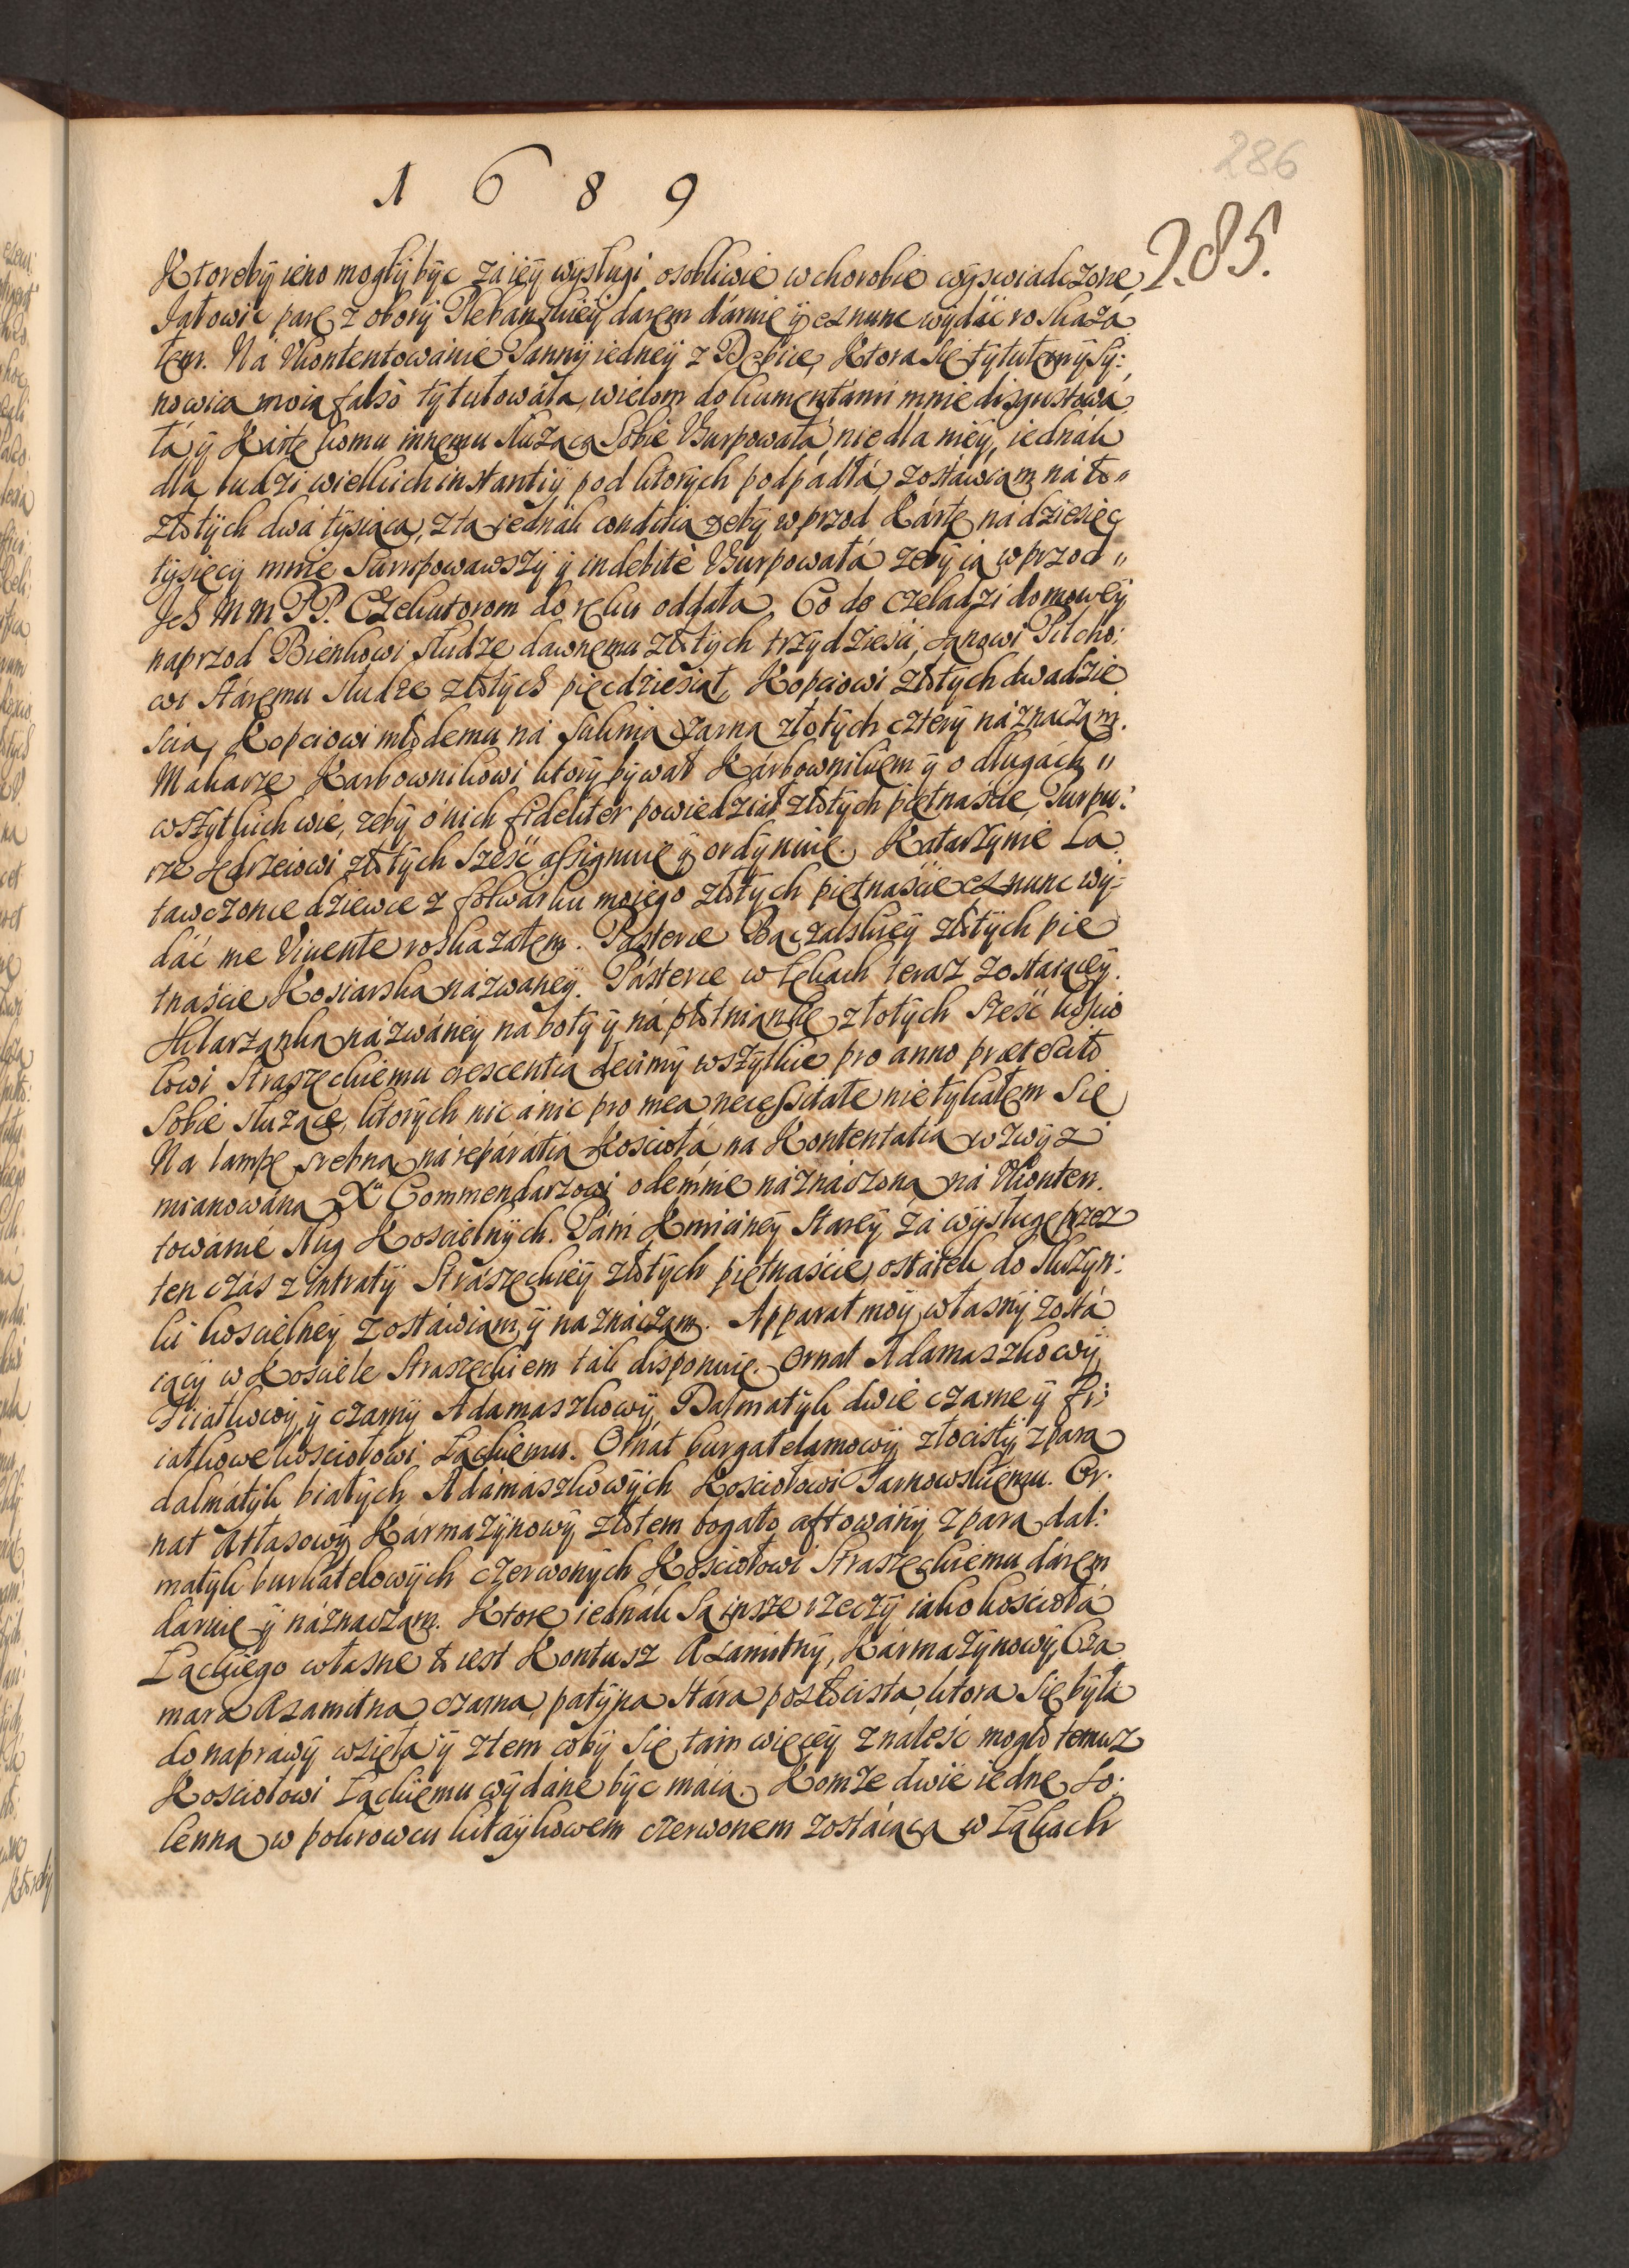 286
1 6 8 9
285.
Ktoreby ieno mogły być zá ieÿ wysługi osobliwie w chorobie wyswiadczone
Jałowic parę z obory Plebanskieÿ darem dáruię ÿ ex nunc wydáć roskazá
łem. Ná Vkontentowánie Pannÿ iedneÿ z Dębice, Ktora się tytułem Sÿ:
nowica moią falsò tytułowáła, wielom dokumentámi mnie disgustowa
łá ÿ Kártę komu innemu służącą Sobie Vsurpowałá, nie dla nieÿ, iednák
dlá ludzi wielkich instantiÿ pod ktorych podpádłá zostáwiam ná to„
złotych dwá tysiąca, z tą iednák conditią żeby wprzod Kártę ná dziesięć
tysięcÿ mnie ÿ indebitè Vsurpowałá zeby ią wprzod„
Jch M m PP. Exekutorom do ręku oddała. Co do Czeladzi domoweÿ
naprzod Bienkowi słudze dawnemu złotych trzydzieści, Janowi Pilcho:
wi Stáremu słudze złotych pięcdziesiąt, Kopciowi złotych dwadzie
ścia, Kopciowi młodemu ná suknią czarną złotych cztery náznaczam.
Makarze Karbownikowi ktory bywał Kárbownikiem ÿ o długách„
wszytkich wie, zeby o nich fideliter powiedział złotych piętnaście, Purpu:
rze Jędrzeiowi złotych sześć assignuię ÿ ordynuię. Katarzynie La
tawczonce dziewce z folwarku moiego złotych piętnaście ex nunc wÿ:
dáć me Vivente roskazałem. Pásterce Baczalskieÿ złotych pię
tnaście Kosiarską názwaneÿ. Pásterce w Łękach teraz zostáiąceÿ.
názwáneÿ na boty ÿ ná płotniankę złotych sześć kościo
łowi Straszęckiemu crescentia decimy wszytkie pro anno præterito
Sobie służące, ktorych nic á nic pro mea necessitate nie tykałem się
Na lampę srebną ná repáratią Kościołá na Kontentatią wzwÿż
mianowaną Xu Commendarzowi odemnie náznáczoną ná Vkonten
towánié sług Kościelnÿch. Páni Kmicineÿ Stareÿ zá wysługę przez
ten czás z intraty Strászęckieÿ złotych piętnaście, ostátek do służÿn:
ki kościelneÿ zostáwiam ÿ náznáczam. Apparat moÿ własny zostá
iący w Kościele Straszęckiem ták disponuię. Ornat Adamaszkowÿ
Fiiałkowÿ, ÿ czarnÿ Adamaszkowÿ, Dalmatÿk dwie czarne ÿ fi:
iałkowe kościołowi Łąckiemu. Ornat burgatelamowÿ złocistÿ z parą
dalmátÿk białÿch Adámászkowÿch Kościołowi Tarnowskiemu. Or:
nat Atłasowÿ Kármazÿnowÿ złotem bogáto aftowánÿ z parą dal:
matÿk burkatelowÿch czerwonÿch Kościołowi Straszęckiemu dárem
dáruię ÿ náznaczam. Ktore iednák są insze rzeczy iáko kościołá
Łąckiego własne to iest Kontusz Axamitnÿ, Kármazÿnowÿ, Cza
mara Axamitna czarna, patÿna stára pozłocista, ktora się bÿłá
do naprawÿ wzięła ÿ z tem cobÿ się tám więceÿ ználeść mogło temuż
Kościołowi Łąckiemu wÿdáne bÿć máią. Komże dwie iedne so:
lenną w pokrowcu kitaÿkowem czerwonem zostáiącą w Łąkách